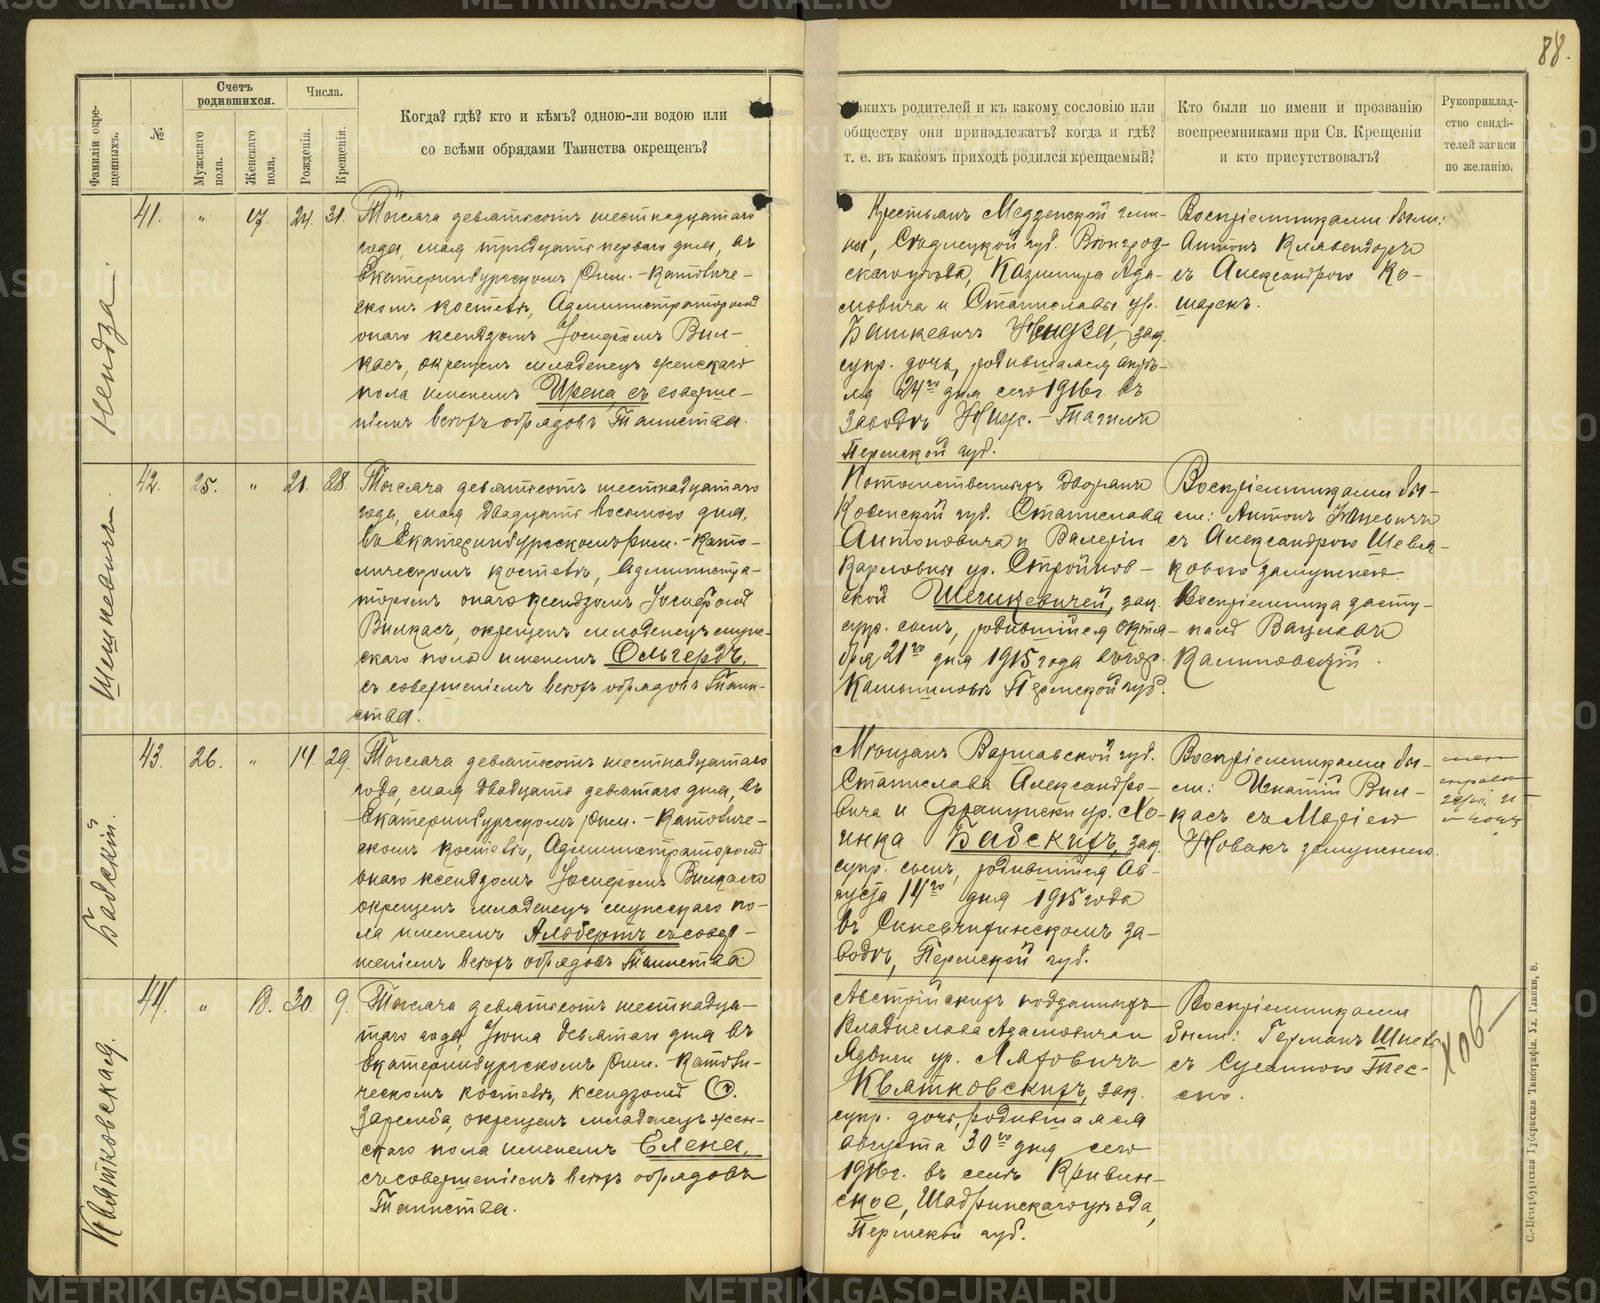 88.
Фамиліи окре-
щенныхъ.
№
Счетъ
родившихся.
Мужскаго
пола.
Женскаго
пола.
Числа.
Рожденія.
Крещенія.
Когда? гдѣ? кто и кѣмъ? одною-ли водою или
со всѣми обрядами Таинства окрещенъ?
какихъ родителей и къ какому сословію или
обществу они принадлежатъ? когда и гдѣ?
т. е. въ какомъ приходѣ родился крещаемый?
Кто были по имени и прозванію
воспреемниками при Св. Крещеніи
и кто присутствовалъ?
Рукоприклад-
ство свидѣ-
телей записи
по желанію.
Нендза
41. " 17. 24. 31.
Тысяча девятьсотъ шестнадцатаго
года, мая тридцать перваго дня, въ
Екатеринбургскомъ Рим.-Католиче-
скомъ костелѣ, Администраторомъ
онаго ксендзомъ Іосифомъ Вил-
касъ, окрещенъ младенецъ женскаго
пола именемъ Ирена, съ соверше-
ніемъ всѣхъ обрядовъ Таинства.
Крестьянъ Медзенской гми-
ны, Сѣдлецкой губ. Венгров-
скаго уѣзда, Казимира Ада-
мовича и Станиславы ур.
Башкевичъ Нендза, зак.
супр. дочь, родившаяся апрѣ-
ля 24го дня сего 1916г. въ
заводѣ Ниж.-Тагилѣ
Пермской губ.
Воспріемниками были:
Антонъ
съ Александрою Ко-
Шешкевичъ.
42. 25. " 21. 28.
Тысяча девятьсотъ шестнадцатаго
года, мая двадцать восьмого дня,
въ Екатеринбургскомъ Рим.-Като-
лическомъ костелѣ, Администра-
торомъ онаго ксендзомъ Іосифомъ
Вилкасъ, окрещенъ младенецъ муж-
скаго пола именемъ Ольгердъ,
съ совершеніемъ всѣхъ обрядовъ Таин-
ства.
Потомственныхъ дворянъ
Ковенской губ. Станислава
Антоновича и Валеріи
Карловны ур. Стройнов-
ской Шешкевичей, зак.
супр. сынъ, родившійся октя-
бря 21го дня 1915 года въ гор.
Камышловѣ Пермской губ.
Воспріемниками бы-
ли: Антонъ
съ Александрою Шевля-
ковою замужнею.
Воспріемника засту-
палъ Вацлавъ
Калиновскій.
Бабскій.
43. 26. " 14. 29.
Тысяча девятьсотъ шестнадцатаго
года, мая двадцать девятаго дня, въ
Екатеринбургскомъ Рим.-Католиче-
скомъ костелѣ, Администраторомъ
онаго ксендзомъ Іосифомъ Вилкасъ
окрещенъ младенецъ мужскаго по-
ла именемъ Альбертъ съ совер-
шеніемъ всѣхъ обрядовъ Таинства.
Мѣщанъ Варшавской губ.
Станислава Александро-
вича и Францишки ур. Хо-
инка Бабскихъ, зак.
супр. сынъ, родившійся Ав-
густа 14го дня 1915 года
въ Синячихинскомъ за-
водѣ, Пермской губ.
Воспріемниками бы-
ли: Игнатій Вил-
касъ съ Маріею
Новакъ замужнею.
Квятковская.
44. " 18. 30. 9.
Тысяча девятьсотъ шестнадца-
таго года, Іюня девятаго дня въ
Екатеринбургскомъ Рим.-Католи-
ческомъ костелѣ, ксендзомъ
Заремба, окрещенъ младенецъ жен-
скаго пола именемъ Елена,
съ совершеніемъ всѣхъ обрядовъ
Таинства.
Австрійскихъ подданныхъ
Владислава Адамовича и
Ядвиги ур.
Квятковскихъ, зак.
супр. дочь, родившаяся
августа 30го дня сего
1916г. въ селѣ Кривин-
ское, Шадринскаго уѣзда,
Пермской губ.
Воспріемниками
были: Германъ
съ Сусанною Тес-
С.-Петербургская Губернская Типографія. Ул. Глинки, 8.
METRIKI.GASO-URAL.RU